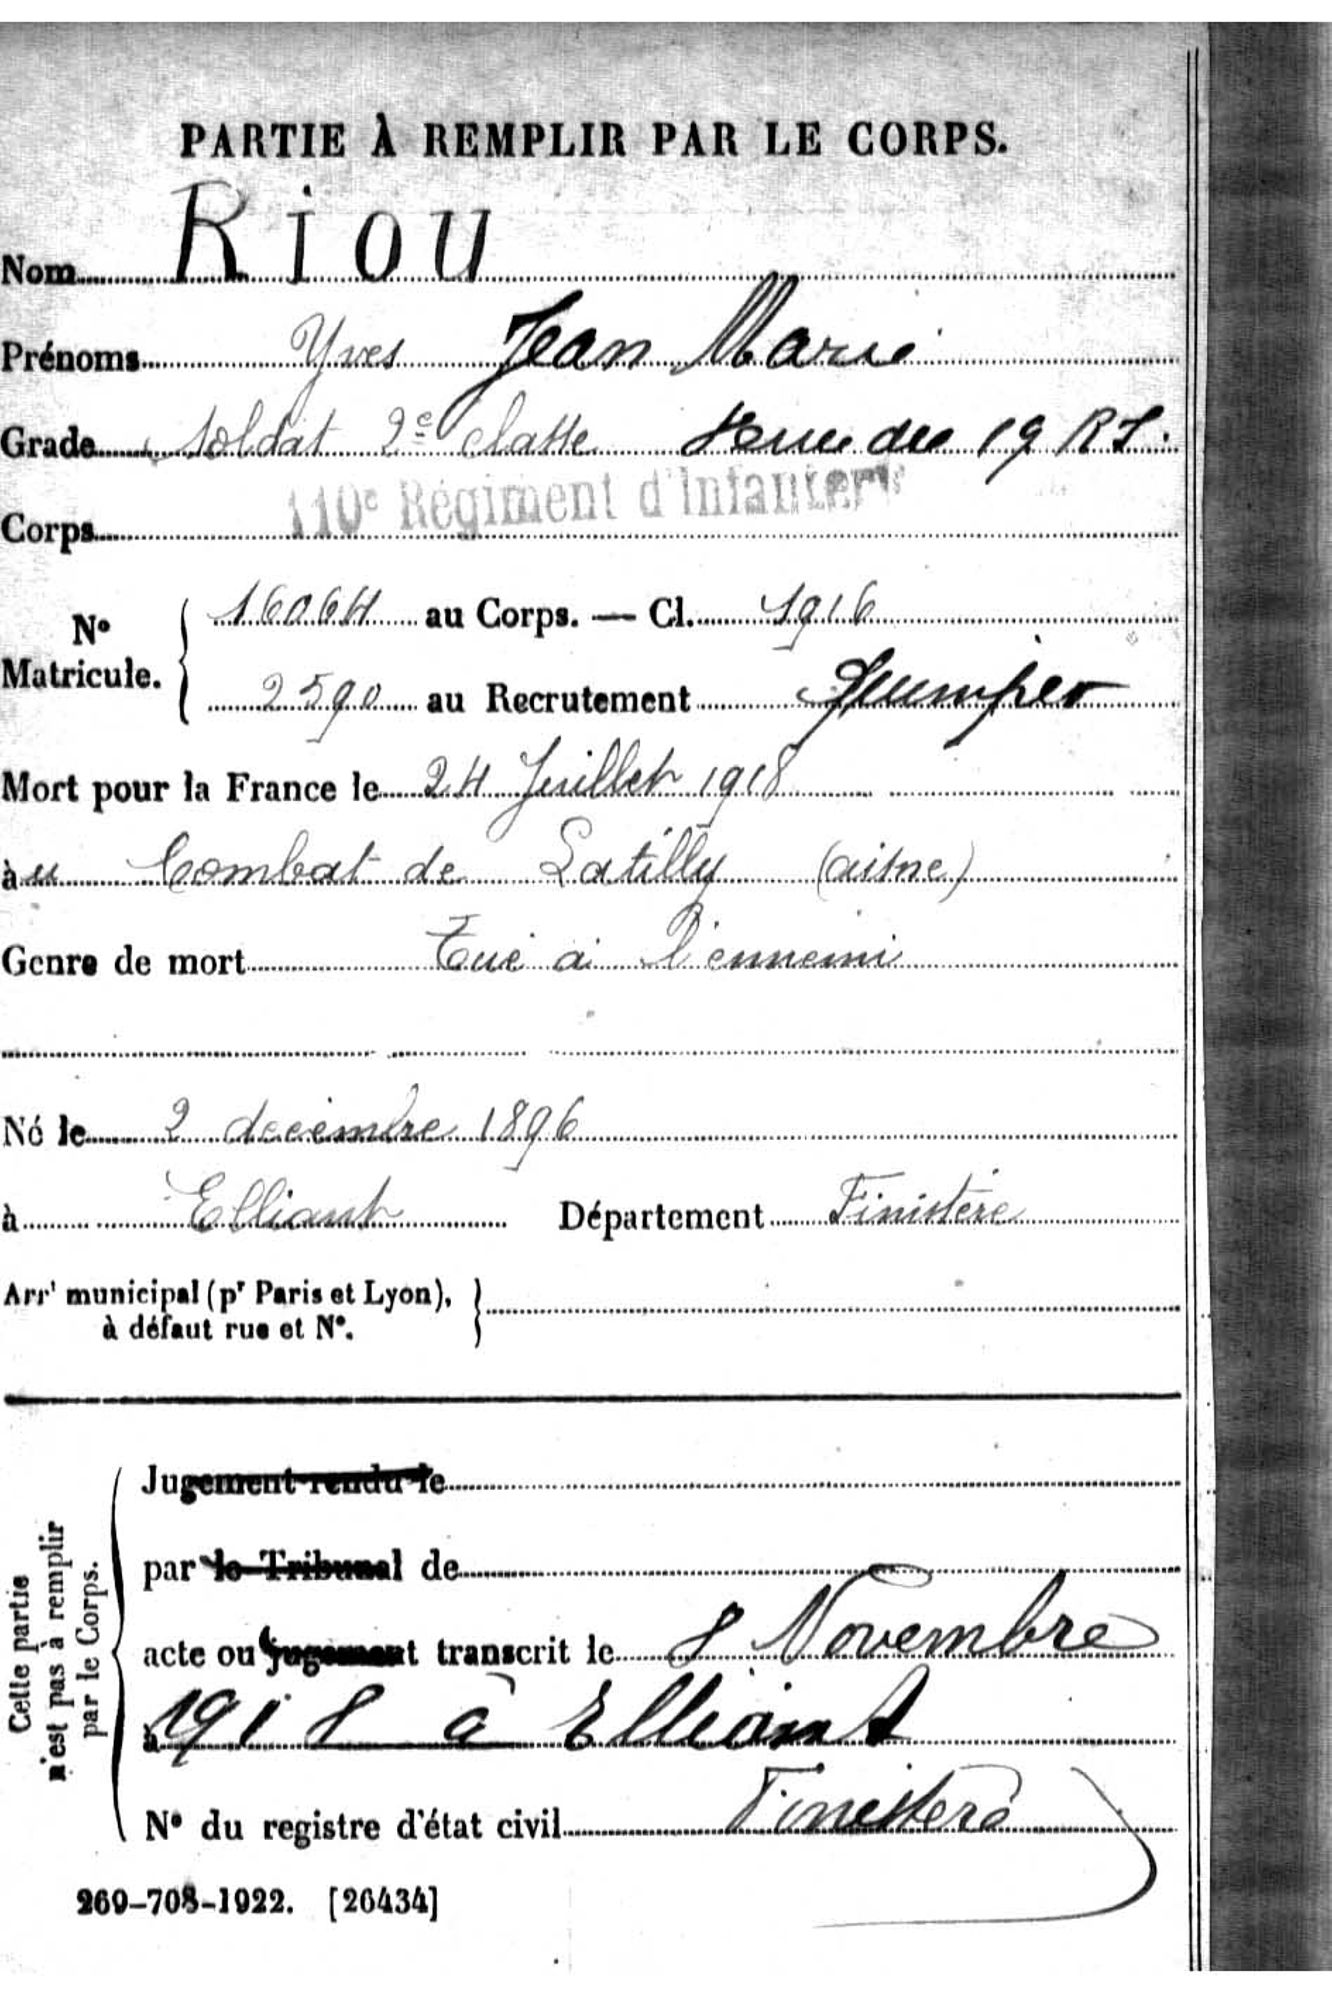 PARTIE À REMPLIR PAR LE CORPS.
Nom Riou
Prénoms Yves Jean Marie
Grade soldat 2e classe des 19 RI.
110e Régiment d'Infanterie
Corps
N° Matricule. 16064 au Corps. — Cl. 1916
2590 au Recrutement Quimper
Mort pour la France le 24 Juillet 1918
àu Combat de Latilly (aisne)
Genre de mort Tué à l'ennemi
Né le 2 decembre 1896
à Elliant Département Finistère
Arrt municipal (pr Paris et Lyon),
à défaut rue et N°.
Cette partie
n'est pas à remplir
par le Corps.
Jugement rendu le
par le Tribunal de
acte ou jugement transcrit le 8 Novembre
à 1918 à Elliant
N° du registre d'état civil Finistère
269-708-1922. [26434]